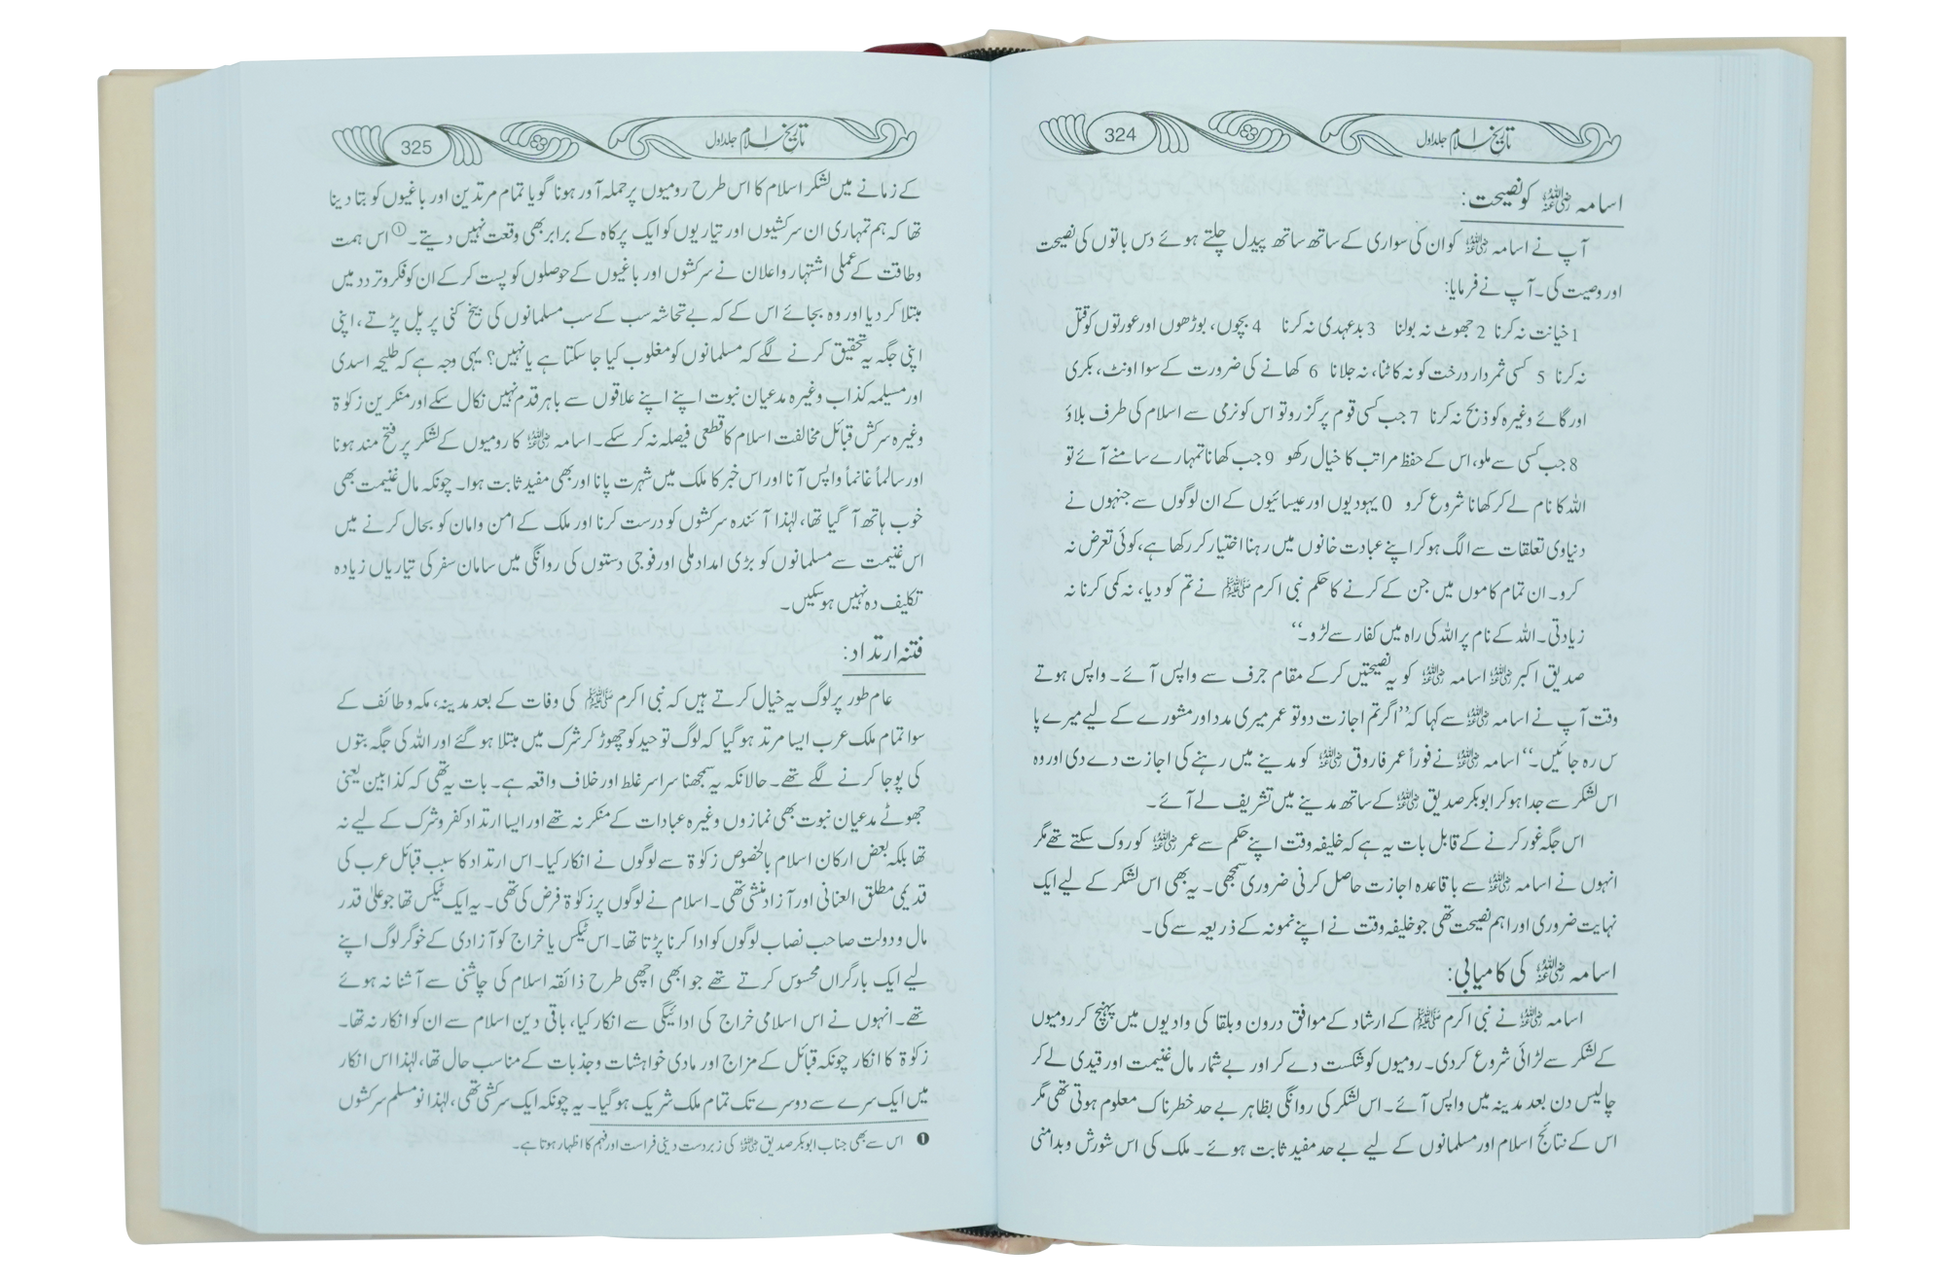 تاریخ اسلام جلد اول 324
اسامہ رضی اللہ عنہ کو نصیحت:
آپ نے اسامہ رضی اللہ عنہ کو ان کی سواری کے ساتھ ساتھ پیدل چلتے ہوئے دس باتوں کی نصیحت
اور وصیت کی۔ آپ نے فرمایا:
1 خیانت نہ کرنا 2 جھوٹ نہ بولنا 3 بدعہدی نہ کرنا 4 بچوں، بوڑھوں اور عورتوں کو قتل
نہ کرنا 5 کسی ثمردار درخت کو نہ کاٹنا، نہ جلانا 6 کھانے کی ضرورت کے سوا اونٹ، بکری
اور گائے وغیرہ کو ذبح نہ کرنا 7 جب کسی قوم پر گزرو تو اس کو نرمی سے اسلام کی طرف بلاؤ
8 جب کسی سے ملو، اس کے حفظ مراتب کا خیال رکھو 9 جب کھانا تمہارے سامنے آئے تو
اللہ کا نام لے کر کھانا شروع کرو 0 یہودیوں اور عیسائیوں کے ان لوگوں سے جنہوں نے
دنیاوی تعلقات سے الگ ہو کر اپنے عبادت خانوں میں رہنا اختیار کر رکھا ہے، کوئی تعرض نہ
کرو۔ ان تمام کاموں میں جن کے کرنے کا حکم نبی اکرم ﷺ نے تم کو دیا، نہ کمی کرنا نہ
زیادتی۔ اللہ کے نام پر اللہ کی راہ میں کفار سے لڑو۔‘‘
صدیق اکبر رضی اللہ عنہ اسامہ رضی اللہ عنہ کو یہ نصیحتیں کر کے مقام جرف سے واپس آئے۔ واپس ہوتے
وقت آپ نے اسامہ رضی اللہ عنہ سے کہا کہ ’’اگر تم اجازت دو تو عمر میری مدد اور مشورے کے لیے میرے پا
س رہ جائیں۔‘‘ اسامہ رضی اللہ عنہ نے فوراً عمر فاروق رضی اللہ عنہ کو مدینے میں رہنے کی اجازت دے دی اور وہ
اس لشکر سے جدا ہو کر ابوبکر صدیق رضی اللہ عنہ کے ساتھ مدینے میں تشریف لے آئے۔
اس جگہ غور کرنے کے قابل بات یہ ہے کہ خلیفہ وقت اپنے حکم سے عمر رضی اللہ عنہ کو روک سکتے تھے مگر
انہوں نے اسامہ رضی اللہ عنہ سے باقاعدہ اجازت حاصل کرنی ضروری سمجھی۔ یہ بھی اس لشکر کے لیے ایک
نہایت ضروری اور اہم نصیحت تھی جو خلیفہ وقت نے اپنے نمونہ کے ذریعہ سے کی۔
اسامہ رضی اللہ عنہ کی کامیابی:
اسامہ رضی اللہ عنہ نے نبی اکرم ﷺ کے ارشاد کے موافق درون و بلقا کی وادیوں میں پہنچ کر رومیوں
کے لشکر سے لڑائی شروع کر دی۔ رومیوں کو شکست دے کر اور بے شمار مال غنیمت اور قیدی لے کر
چالیس دن بعد مدینہ میں واپس آئے۔ اس لشکر کی روانگی بظاہر بے حد خطرناک معلوم ہوتی تھی مگر
اس کے نتائج اسلام اور مسلمانوں کے لیے بے حد مفید ثابت ہوئے۔ ملک کی اس شورش و بدامنی
تاریخ اسلام جلد اول 325
کے زمانے میں لشکر اسلام کا اس طرح رومیوں پر حملہ آور ہونا گویا تمام مرتدین اور باغیوں کو بتا دینا
تھا کہ ہم تمہاری ان سرکشیوں اور تیاریوں کو ایک پرکاہ کے برابر بھی وقعت نہیں دیتے۔① اس ہمت
و طاقت کے عملی اشتہار و اعلان نے سرکشوں اور باغیوں کے حوصلوں کو پست کر کے ان کو فکر و تردد میں
مبتلا کر دیا اور وہ بجائے اس کے کہ بے تحاشہ سب کے سب مسلمانوں کی بیخ کنی پر پل پڑتے، اپنی
اپنی جگہ یہ تحقیق کرنے لگے کہ مسلمانوں کو مغلوب کیا جا سکتا ہے یا نہیں؟ یہی وجہ ہے کہ طلیحہ اسدی
اور مسیلمہ کذاب وغیرہ مدعیان نبوت اپنے اپنے علاقوں سے باہر قدم نہیں نکال سکے اور منکرین زکوٰۃ
وغیرہ سرکش قبائل مخالفت اسلام کا قطعی فیصلہ نہ کر سکے۔ اسامہ رضی اللہ عنہ کا رومیوں کے لشکر پر فتح مند ہونا
اور سالماً غانماً واپس آنا اور اس خبر کا ملک میں شہرت پانا اور بھی مفید ثابت ہوا۔ چونکہ مال غنیمت بھی
خوب ہاتھ آ گیا تھا، لہٰذا آئندہ سرکشوں کو درست کرنا اور ملک کے امن و امان کو بحال کرنے میں
اس غنیمت سے مسلمانوں کو بڑی امداد ملی اور فوجی دستوں کی روانگی میں سامان سفر کی تیاریاں زیادہ
تکلیف دہ نہیں ہو سکیں۔
فتنہ ارتداد:
عام طور پر لوگ یہ خیال کرتے ہیں کہ نبی اکرم ﷺ کی وفات کے بعد مدینہ، مکہ و طائف کے
سوا تمام ملک عرب ایسا مرتد ہو گیا کہ لوگ توحید کو چھوڑ کر شرک میں مبتلا ہو گئے اور اللہ کی جگہ بتوں
کی پوجا کرنے لگے تھے۔ حالانکہ یہ سمجھنا سراسر غلط اور خلاف واقعہ ہے۔ بات یہ تھی کہ کذابین یعنی
جھوٹے مدعیان نبوت بھی نمازوں وغیرہ عبادات کے منکر نہ تھے اور ایسا ارتداد کفر و شرک کے لیے نہ
تھا بلکہ بعض ارکان اسلام بالخصوص زکوٰۃ سے لوگوں نے انکار کیا۔ اس ارتداد کا سبب قبائل عرب کی
قدیمی مطلق العنانی اور آزاد منشی تھی۔ اسلام نے لوگوں پر زکوٰۃ فرض کی تھی۔ یہ ایک ٹیکس تھا جو علیٰ قدر
مال و دولت صاحب نصاب لوگوں کو ادا کرنا پڑتا تھا۔ اس ٹیکس یا خراج کو آزادی کے خوگر لوگ اپنے
لیے ایک بارگراں محسوس کرتے تھے جو ابھی اچھی طرح ذائقہ اسلام کی چاشنی سے آشنا نہ ہوئے
تھے۔ انہوں نے اس اسلامی خراج کی ادائیگی سے انکار کیا، باقی دین اسلام سے ان کو انکار نہ تھا۔
زکوٰۃ کا انکار چونکہ قبائل کے مزاج اور مادی خواہشات و جذبات کے مناسب حال تھا، لہٰذا اس انکار
میں ایک سرے سے دوسرے تک تمام ملک شریک ہو گیا۔ یہ چونکہ ایک سرکشی تھی، لہٰذا نو مسلم سرکشوں
❶ اس سے بھی جناب ابوبکر صدیق رضی اللہ عنہ کی زبردست دینی فراست اور فہم کا اظہار ہوتا ہے۔